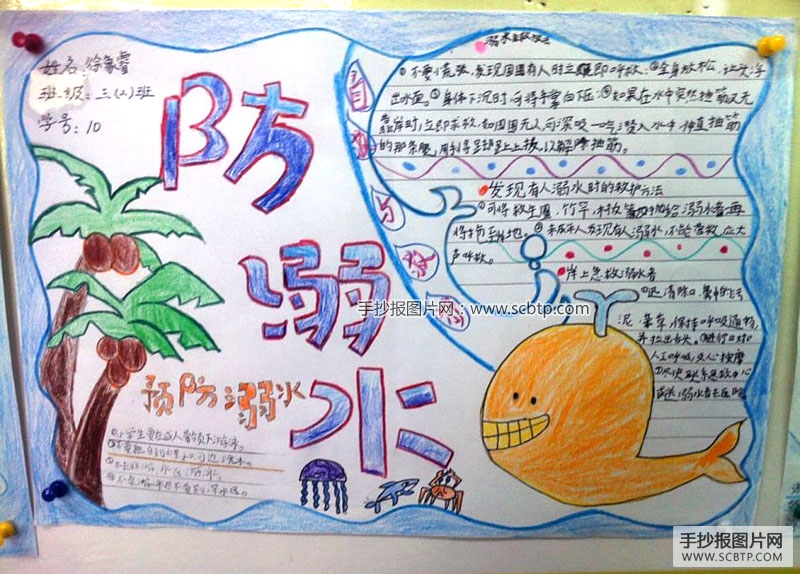 姓名:徐象睿
班级:三(2)班
学号:10
防
溺
水
预防溺水
①小学生要在成人带领下游泳。
溺水自救方法
自
救
与
救
①不要慌张,发现周围有人时立即呼救。②全身放松,让头浮
出水面。③身体下沉时,可将手掌向下压④如果在水中突然抽筋又无
靠岸时,立即求救,如周围无人,可深吸一气潜入水中伸直抽筋
的那条腿,用手将足趾向上拔,以解除抽筋。
发现有人溺水时的救护方法
①可将救生圈,竹竿,木板等抛给溺水者再
将拖至岸地。②未成年人发现有人溺水,不能
声呼救。
岸上急救溺水者
①迅清除口、鼻中的污
泥、杂草,保持呼吸通畅,
并拉出舌头。②进行口对口
人工呼吸及心按摩
③尽快联系急救中心
或送溺水者去医院
手抄报图片网:www.scbtp.com
手抄报图片网
WWW.SCBTP.COM